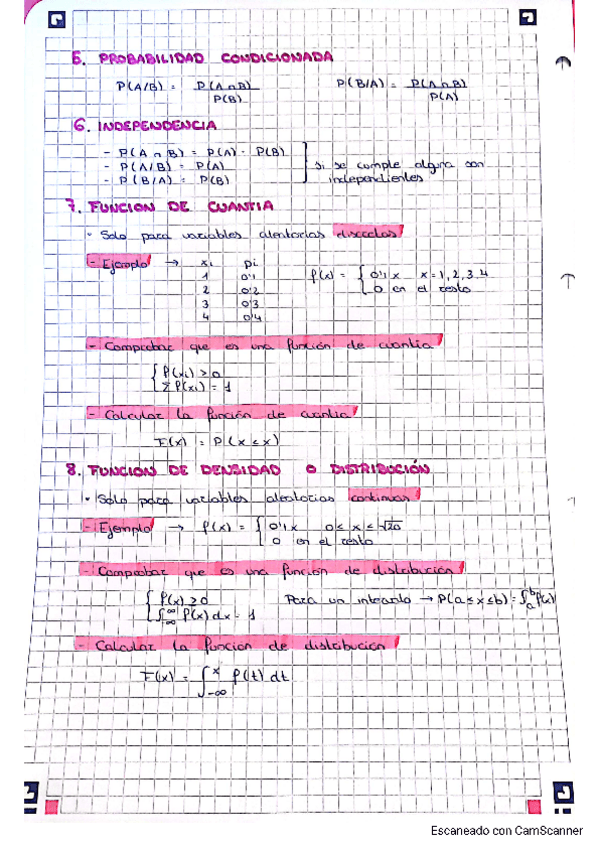 5. PROBABILIDAD CONDICIONADA
P(A/B) = P(A∩B) / P(B) P(B/A) = P(A∩B) / P(A)
6. INDEPENDENCIA
- P(A∩B) = P(A) · P(B)
- P(A/B) = P(A) } si se cumple alguna son
- P(B/A) = P(B) independientes
7. FUNCION DE CUANTIA
· Solo para variables aleatorias discretas
- Ejemplo → xi pi
1 0'1 f(x) = { 0'1x x = 1, 2, 3, 4
2 0'2 0 en el resto
3 0'3
4 0'4
- Comprobar que es una función de cuantia
{ f(xi) > 0
Σ f(xi) = 1
- Calcular la función de cuantia
F(x) = P(x ≤ x)
8. FUNCION DE DENSIDAD O DISTRIBUCIÓN
· Solo para variables aleatorias continuas
- Ejemplo → f(x) = { 0'1x 0 ≤ x ≤ √20
0 en el resto
- Comprobar que es una función de distribución
{ f(x) > 0 Para un intervalo → P(a ≤ x ≤ b) = ∫ₐᵇ f(x)
∫₋∞^∞ f(x) dx = 1
- Calcular la funcion de distribucion
F(x) = ∫₋∞^x f(t) dt
Escaneado con CamScanner